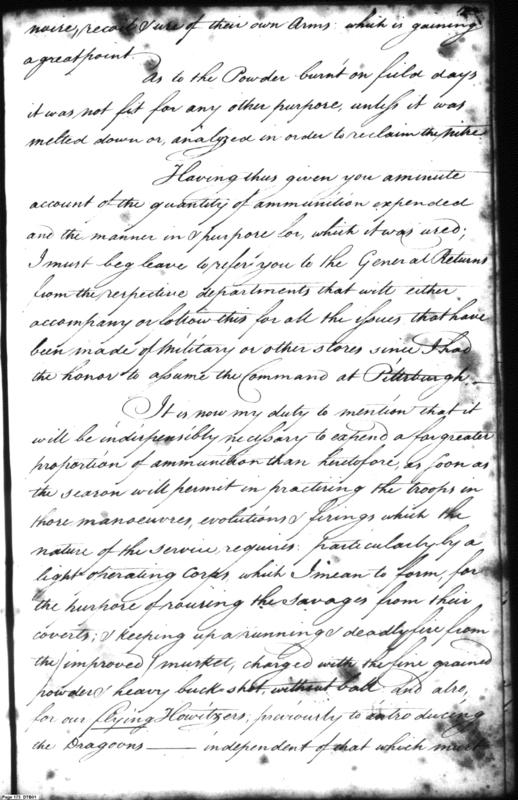 noise, recoil & use of their own Arms: which is gaining
a great point.
As to the Powder burn't on field days
it was not fit for any other purpose, unless it was
melted down or, analyzed in order to reclaim the nitre.
Having thus given you a minute
account of the quantity of ammunition expended
and the manner in & purpose for, which it was used;
I must beg leave to refer you to the General Returns
from the respective departments that will either
accompany or follow this for all the issues that have
been made of Military or other stores since I had
the honor to assume the Command at Pittsburgh.—
It is now my duty to mention that it
will be indispensibly necessary to expend a far greater
proportion of ammunition than heretofore, as soon as
the season will permit in practising the troops in
those manoeuvres, evolutions & firings which the
nature of the service, requires: particularly by a
light operating Corps, which I mean to form, for
the purpose of rousing the savages from their
coverts; & keeping up a running & deadly fire from
the (improved) musket, charged with the fine grained
powder & heavy buck shot without ball and also,
for our flying Howitzers, previously to introducing
the Dragoons —— independent of that which must